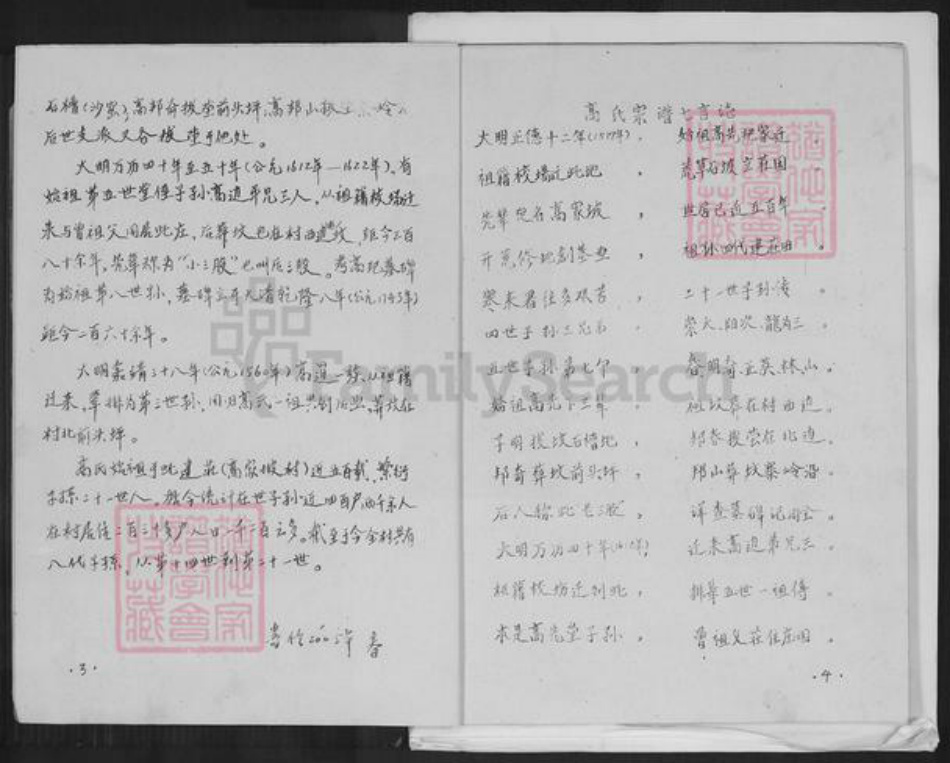 石槽(沙窝),高邦奇拨茔前头坪,高邦山拨茔
后世支派又各拨茔于他处。
大明万历四十年至五十年(公元1612年—1622年),有
始祖第五世堂侄子孙高进弟兄三人,从祖籍校场迁
来与曾祖父同居此庄,后葬坟也在村西边,距今三百
八十余年,先辈称为“小三股”也叫后三股。考高 墓碑
为始祖第八世孙,墓碑立于大清乾隆八年(公元1743年)
距今二百六十余年。
大明嘉靖三十八年(公元1560年)高 一族从祖籍
迁来,辈排为第三世孙,同归高氏一祖共创后业,葬坟在
村北前头坪。
高氏始祖于此建庄(高家坡村)近五百载,繁衍
子孙二十一世人。据今统计在世子孙近四百户两千余人
在村居住二百三十多户人口一千二百之多。截至于今全村共有
八代子孙,从第十四世到第二十一世。
春
·3·
高氏宗谱七言诗
大明正德十二年(1517年), 始祖高先把家迁。
祖籍校场迁此地, 荒草石坡立庄园。
先辈起名高家坡, 世居已近五百年。
开荒修地创基业, 祖孙四代建庄田。
寒来暑往多艰苦, 二十一世子孙传。
四世子孙三兄弟, 崇大、阳次、龍为三。
五世子孙弟七个, 春明奇玉英林山。
始祖高先卜三年, 祖坟葬在村西边。
子明拨坟石槽地, 邦春拨茔在北边。
邦奇葬坟前头坪, 邦山葬坟秦岭沿。
后人称此老三股, 详查墓碑记周全。
大明万历四十年(1612年) 迁来高进弟兄三。
祖籍校场迁到此, 排辈五世一祖传。
本是高先堂子孙, 曾祖父在住庄园。
·4·